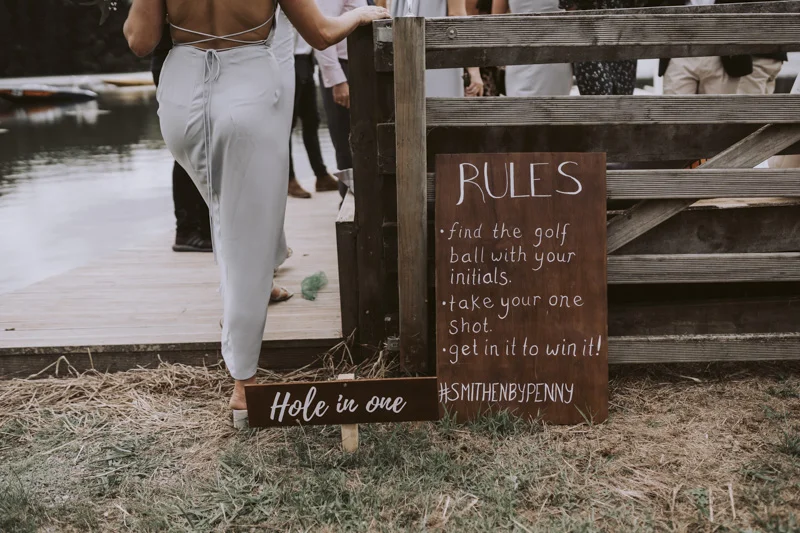 RULES
• find the golf
ball with your
initials.
• take your one
shot.
• get in it to win it!
#SMITHENBYPENNY
Hole in one